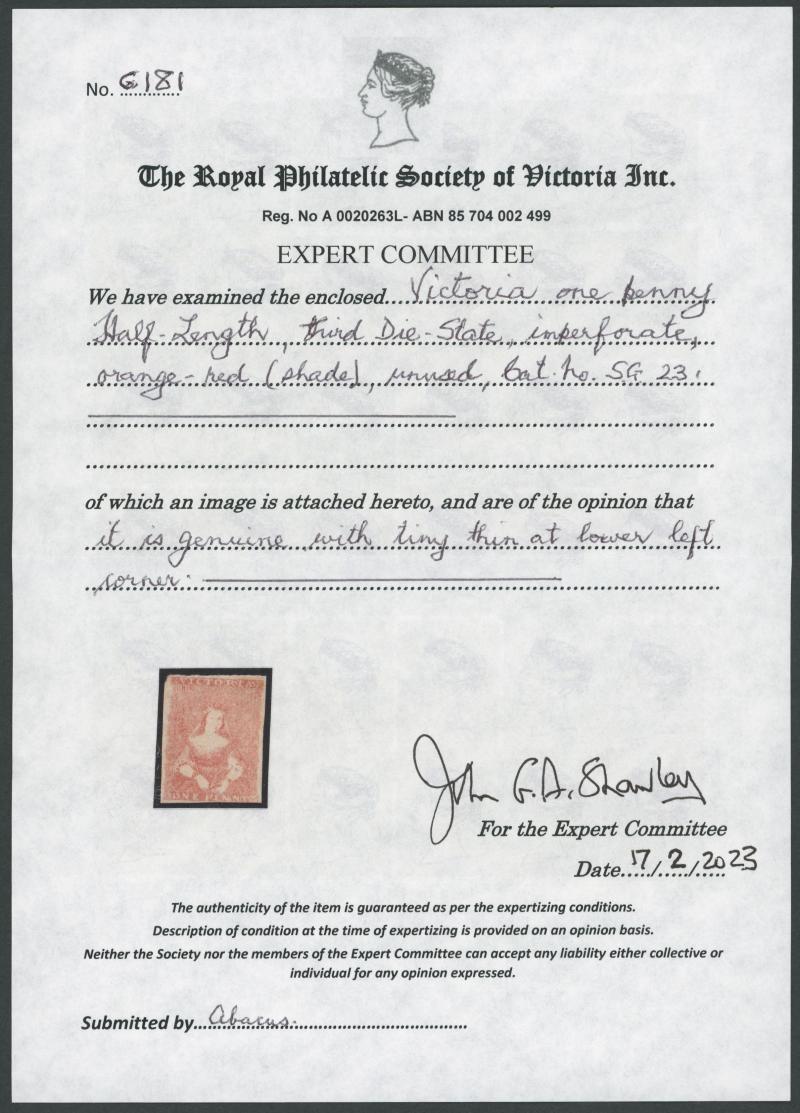 No. 6181
The Royal Philatelic Society of Victoria Inc.
Reg. No A 0020263L- ABN 85 704 002 499
EXPERT COMMITTEE
We have examined the enclosed....Victoria one penny
Half-Length, third Die-State, imperforate,
orange-red (shade), unused, Cat. no. SG 23.
of which an image is attached hereto, and are of the opinion that
it is genuine with tiny thin at lower left
corner.
VICTORIA
ONE PENNY
John G.A. Shawley
For the Expert Committee
Date.....17/.2./.2023
The authenticity of the item is guaranteed as per the expertizing conditions.
Description of condition at the time of expertizing is provided on an opinion basis.
Neither the Society nor the members of the Expert Committee can accept any liability either collective or
individual for any opinion expressed.
Submitted by...Abacus.